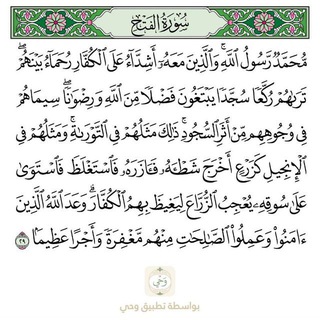 سُورَةُ الفَتْحِ
مُّحَمَّدٌ رَّسُولُ ٱللَّهِۚ وَٱلَّذِينَ مَعَهُۥٓ أَشِدَّآءُ عَلَى ٱلْكُفَّارِ رُحَمَآءُ بَيْنَهُمْۖ
تَرَىٰهُمْ رُكَّعًا سُجَّدًا يَبْتَغُونَ فَضْلًا مِّنَ ٱللَّهِ وَرِضْوَٰنًاۖ سِيمَاهُمْ
فِى وُجُوهِهِم مِّنْ أَثَرِ ٱلسُّجُودِۚ ذَٰلِكَ مَثَلُهُمْ فِى ٱلتَّوْرَىٰةِۚ وَمَثَلُهُمْ فِى
ٱلْإِنجِيلِ كَزَرْعٍ أَخْرَجَ شَطْـَٔهُۥ فَـَٔازَرَهُۥ فَٱسْتَغْلَظَ فَٱسْتَوَىٰ
عَلَىٰ سُوقِهِۦ يُعْجِبُ ٱلزُّرَّاعَ لِيَغِيظَ بِهِمُ ٱلْكُفَّارَۗ وَعَدَ ٱللَّهُ ٱلَّذِينَ
ءَامَنُوا۟ وَعَمِلُوا۟ ٱلصَّٰلِحَٰتِ مِنْهُم مَّغْفِرَةً وَأَجْرًا عَظِيمًۢا ٢٩
وَحْي
بواسطة تطبيق وحي